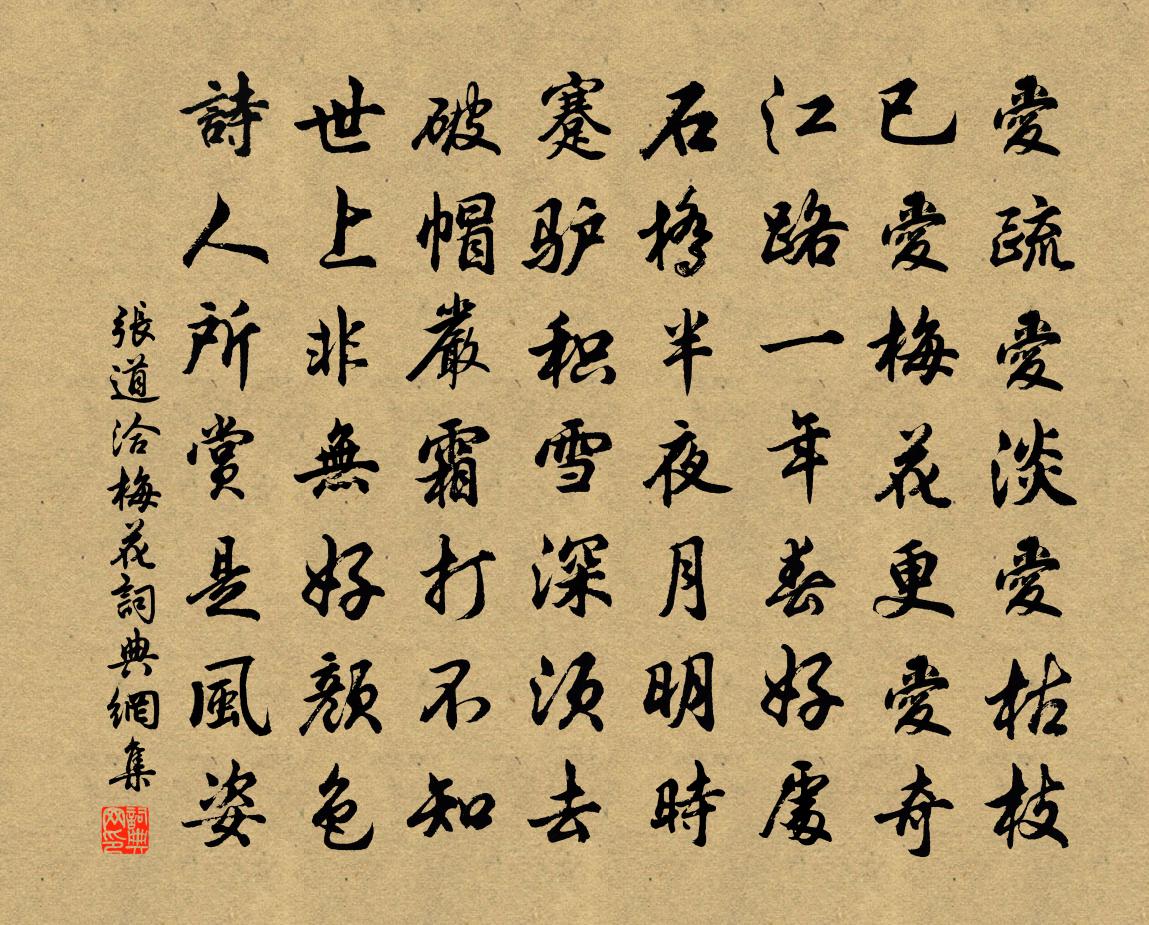 愛疏愛淡愛枯枝
已愛梅花更愛奇
江路一年春好處
石橋半夜月明時
蹇驴积雪深须去
破帽嚴霜打不知
世上非無好顏色
詩人所賞是風姿
張道洽梅花詞典網集
詞典网印